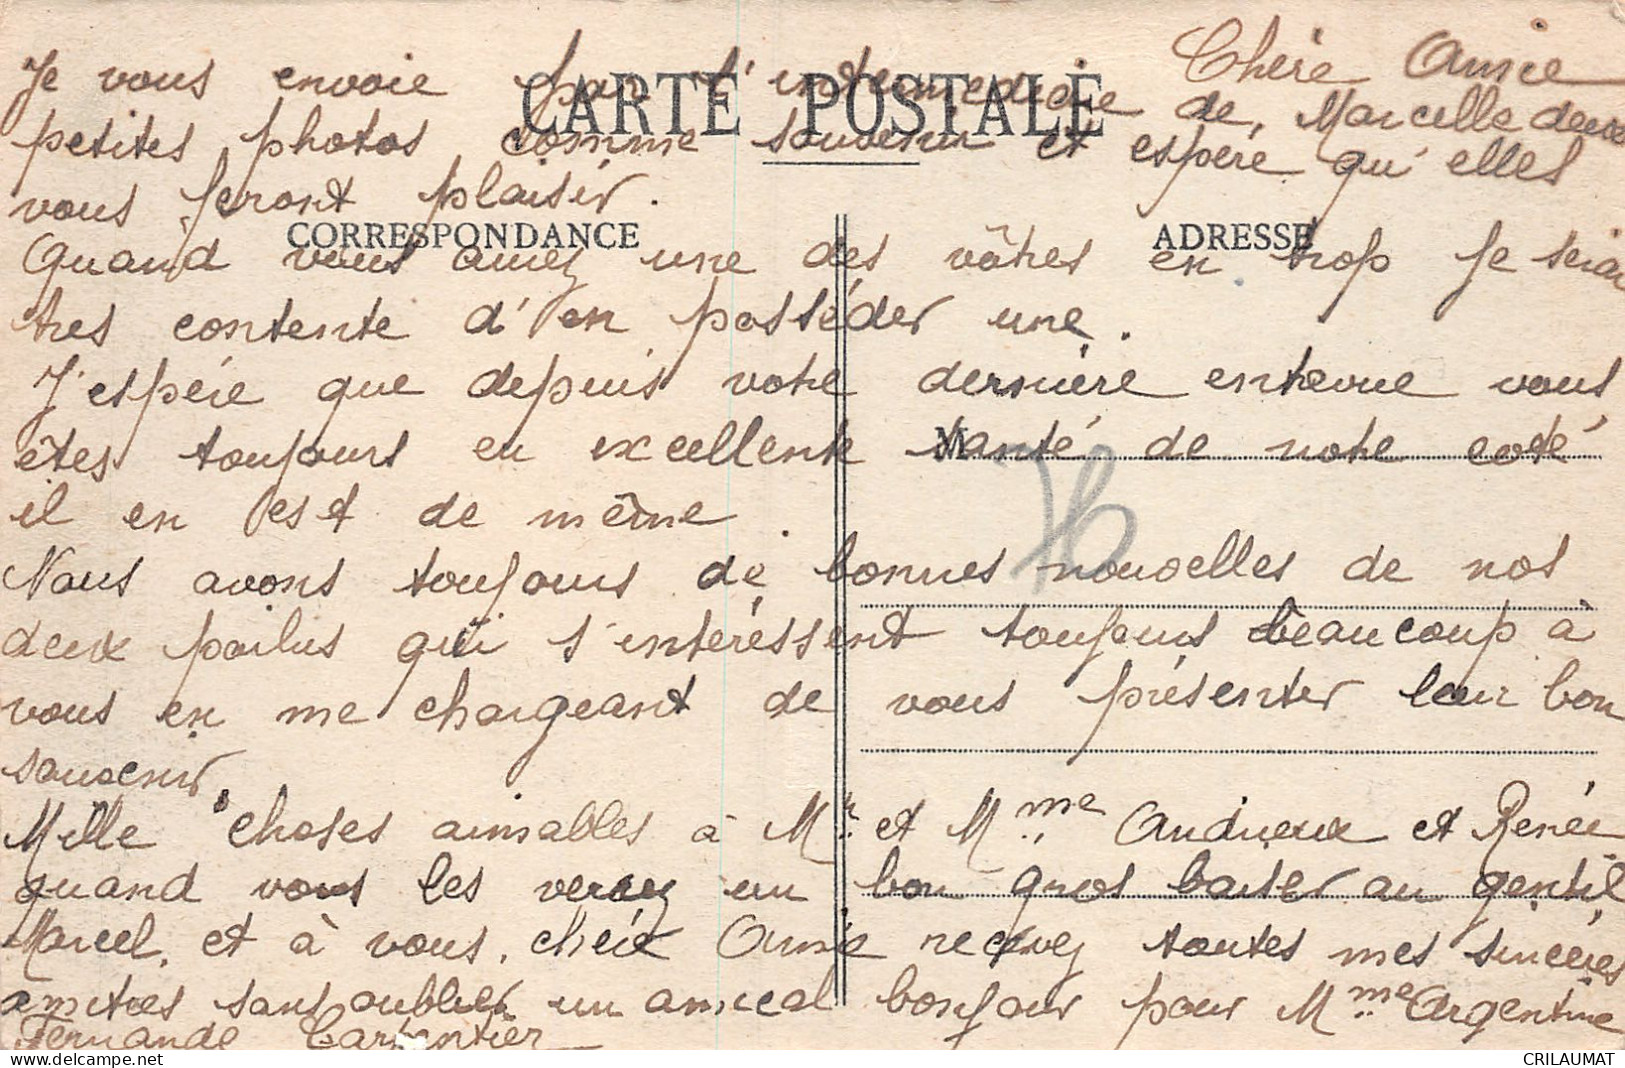 Chère Amie
Je vous envoie par l'intermédiaire de Marcelle deux
CARTE POSTALE
petites photos comme souvenir et espère qu'elles
vous feront plaisir.
CORRESPONDANCE
ADRESSE
Quand vous aurez une des vôtres en trop je serai
tres contente d'en posséder une.
J'espère que depuis votre dernière entrevue vous
êtes toujours en excellente santé de notre coté
M
il en est de même.
76
Nous avons toujours de bonnes nouvelles de nos
deux poilus qui s'intéressent toujours beaucoup à
vous en me chargeant de vous présenter leur bon
souvenir.
Mille choses aimables à Mr et Mme Andrieux et Renée
quand vous les verrez un bon gros baiser au gentil
Marcel, et à vous, chère Amie recevez toutes mes sincères
amitiés sans oublier un amical bonjour pour Mme Argentine
Fernande Carpentier
delcampe.net
CRILAUMAT